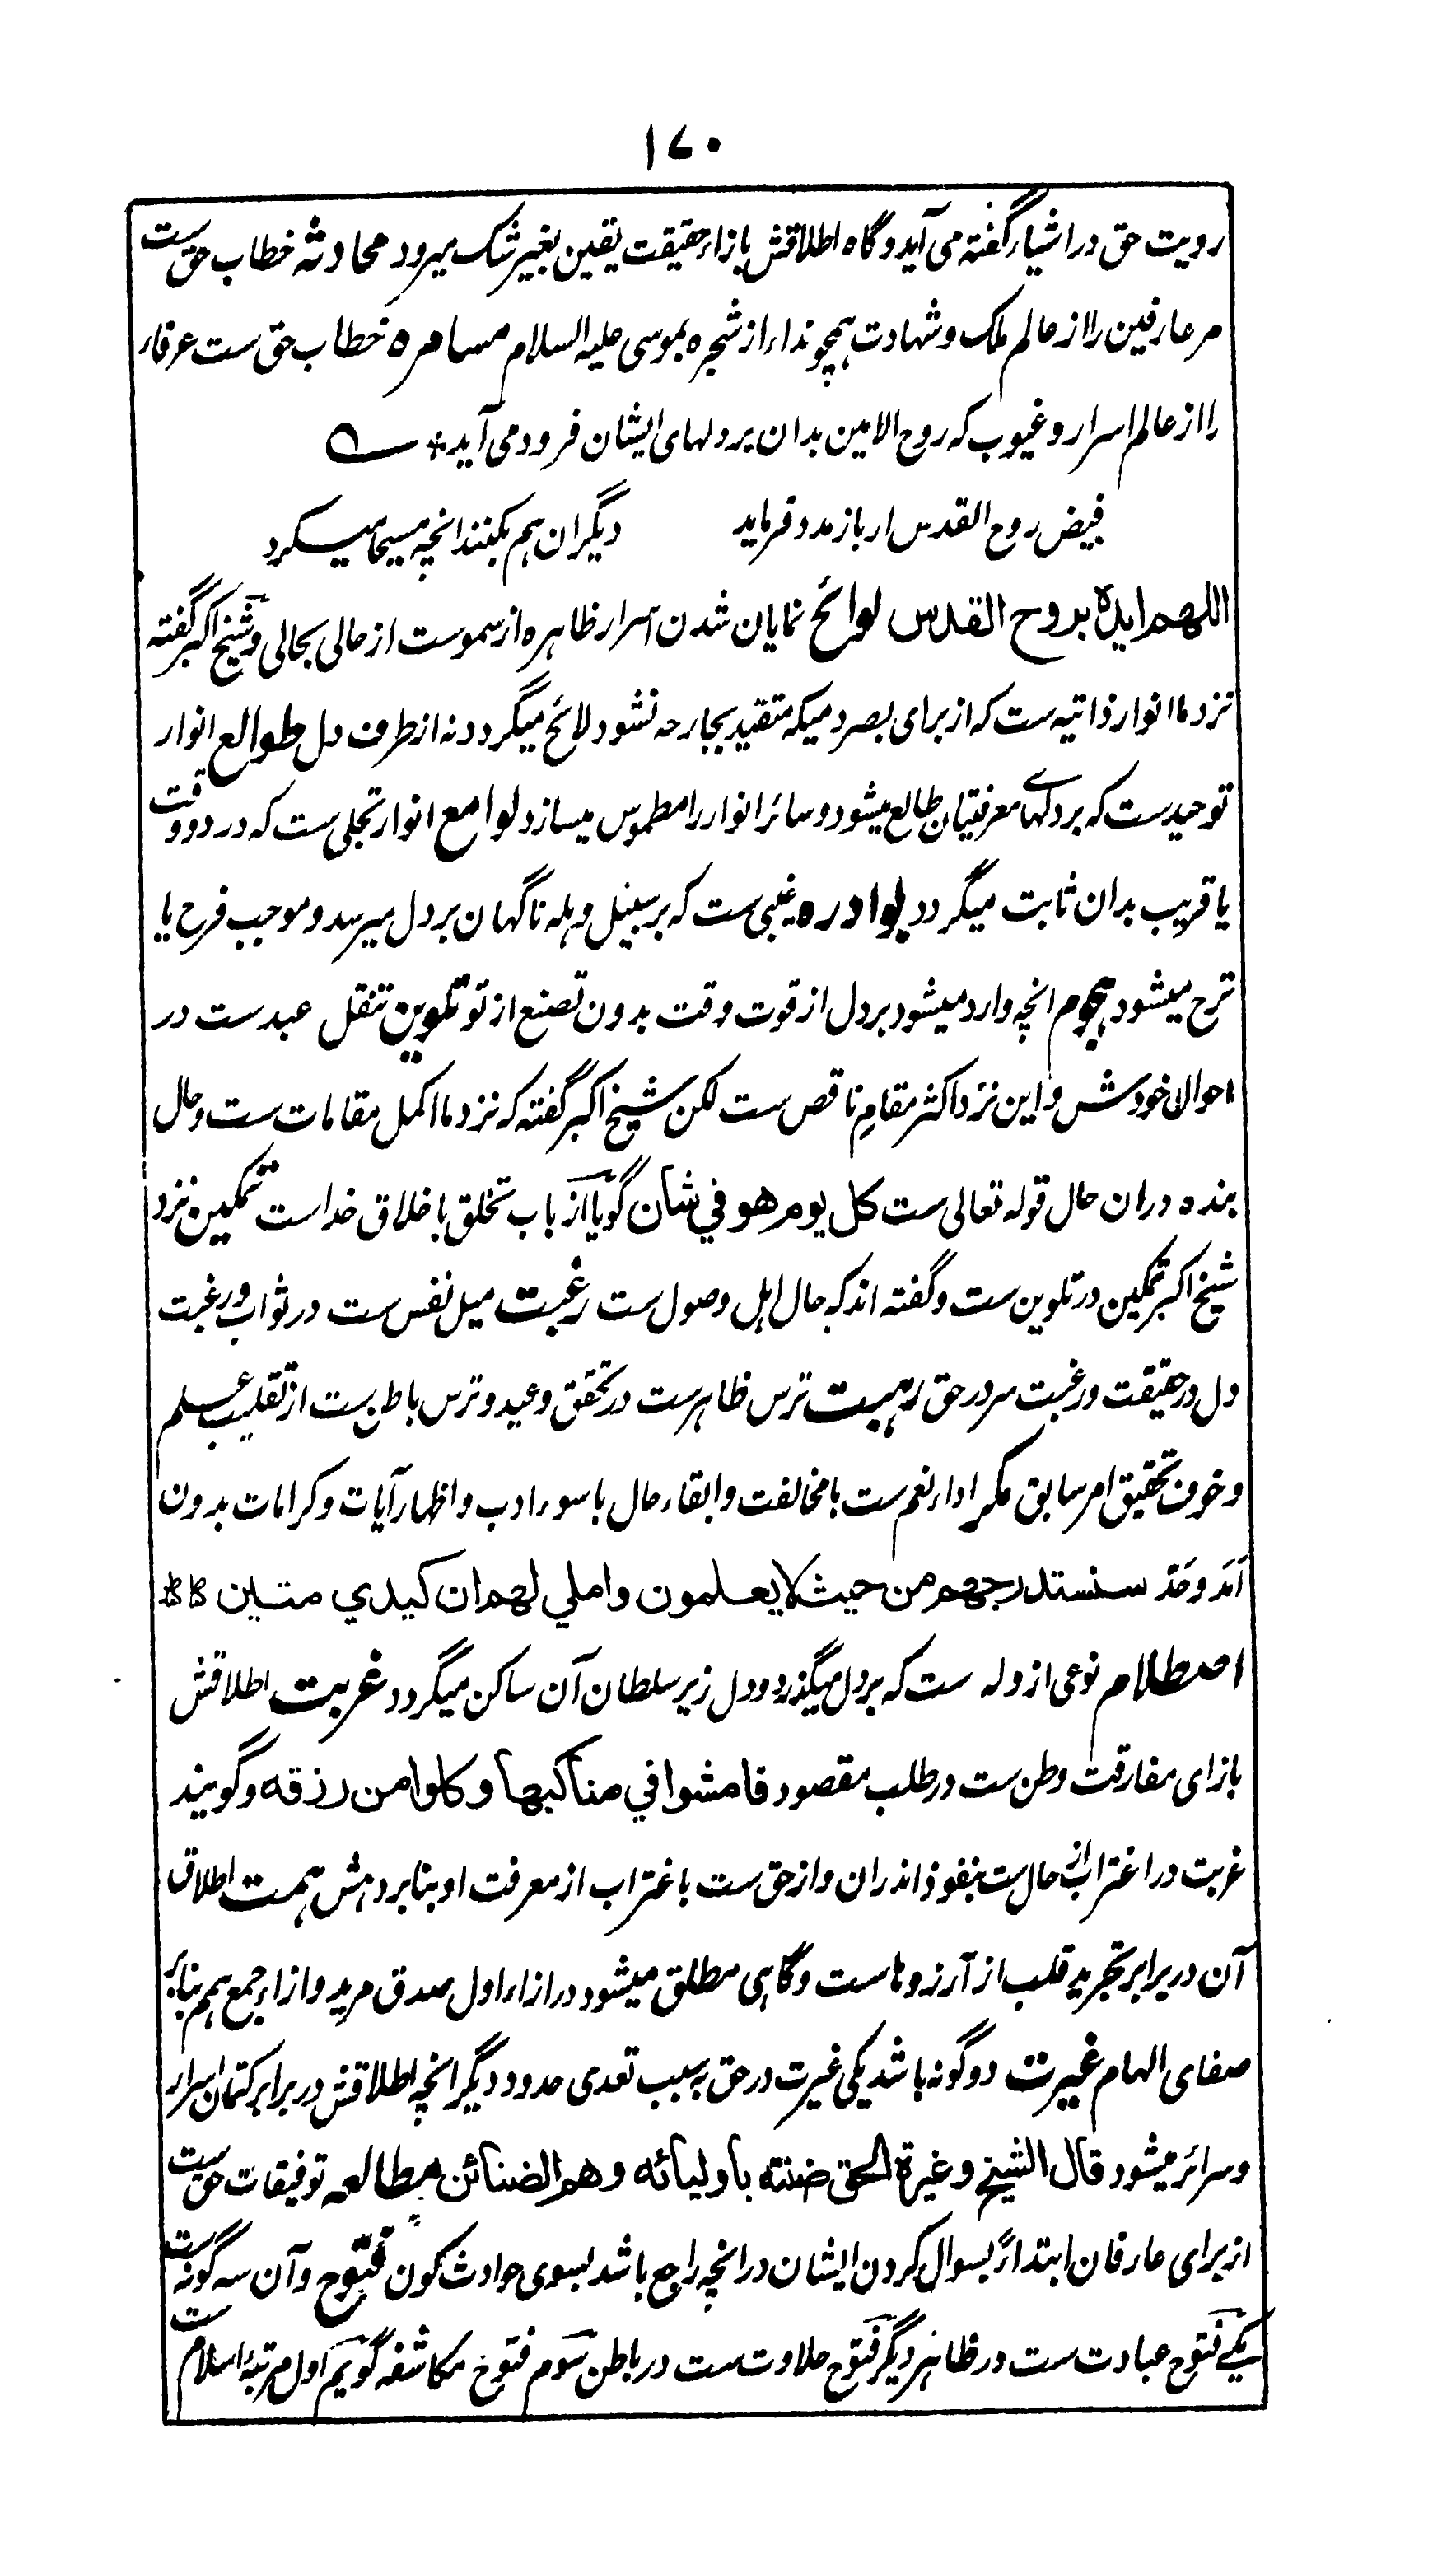 ۱۷۰
رویت حق در اشیاء گفته می آید و گاه اطلاقش بازاء حقیقت یقین بغیر شک میرود محادثه خطاب حق ست
مر عارفین را از عالم ملک و شهادت همچو نداء از شجره بموسی علیه السلام مسامره خطاب حق ست عرفاء
را از عالم اسرار و غیوب که روح الامین بدان بر دلهای ایشان فرود می آید *
فیض روح القدس ار باز مدد فرماید دیگران هم بکنند انچه مسیحا میکرد
اللهم ایده بروح القدس لوائح نمایان شدن اسرار ظاهره از سموست از حالی بحالی و شیخ اکبر گفته
نزد ما انوار ذاتیه ست که از برای بصر دمیکه متقید بجارحه نشود لائح میگردد نه از طرف دل طوالع انوار
توحیدست که بر دلهای معرفتیان طالع میشود و سائر انوار را مطموس میسازد لوامع انوار تجلی ست که در دو وقت
یا قریب بدان ثابت میگردد بوادره غیبی ست که بر سبیل وهله ناگهان بر دل میرسد و موجب فرح یا
ترح میشود هجوم انچه وارد میشود بر دل از قوت وقت بدون تصنع از تو تلوین تنقل عبدست در
احوال خودش و این نزد اکثر مقام ناقص ست لکن شیخ اکبر گفته که نزد ما اکمل مقامات ست و حال
بنده دران حال قوله تعالی ست کل یوم هو في شأن گویا از باب تخلق باخلاق خداست تمکین نزد
شیخ اکبر تمکین در تلوین ست و گفته اند که حال اهل وصول ست رغبت میل نفس ست در ثواب و رغبت
دل در حقیقت و رغبت سر در حق رهبت ترس ظاهرست در تحقق وعید و ترس باطن ست از تقلیب علم
و خوف تحقیق امر سابق مکر اداء نعم ست با مخالفت و ابقاء حال با سوء ادب و اظهار آیات و کرامات بدون
اَمَد و حَد سنستدرجهم من حیث لا یعلمون واملي لهم ان کیدي متین
اصطلام نوعی از وله ست که بر دل میگذرد و دل زیر سلطان آن ساکن میگردد غربت اطلاقش
بازای مفارقت وطن ست در طلب مقصود فامشوا في مناکبها وکلوا من رزقه و گویند
غربت در اغتراب از حال ست بنفوذ اندران و از حق ست باغتراب از معرفت او بنا بر دهش همت اطلاق
آن در برابر تجرید قلب از آرزوهاست و گاهی مطلق میشود در ازاء اول صدق مرید و ازاء جمع همم بنا بر
صفای الهام غیرت دو گونه باشد یکی غیرت در حق بسبب تعدی حدود دیگر انچه اطلاقش در برابر کتمان اسرار
و سرائر میشود قال الشیخ وغیرة الحق ضنته بأولیائه وهم الضنائن مطالعه توفیقات حق ست
از برای عارفان ابتداءً بسوال کردن ایشان در انچه راجع باشد بسوی حوادث کون فتوح و آن سه گونه ست
یکے فتوح عبادت ست در ظاهر دیگر فتوح حلاوت ست در باطن سوم فتوح مکاشفه گویم اول مرتبهٔ اسلام ست